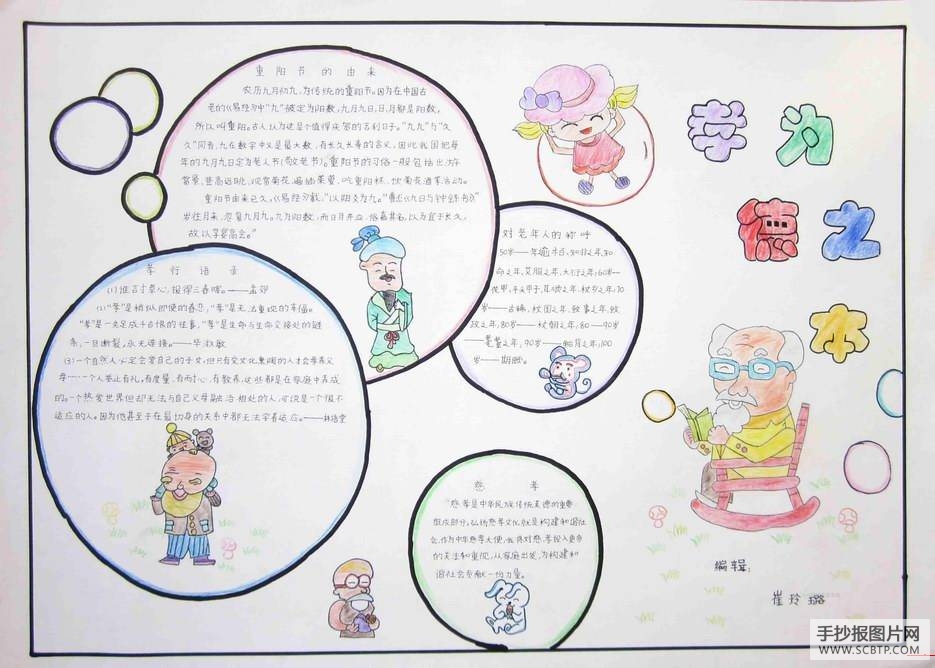 重阳节的由来
农历九月初九,为传统的重阳节。因为在中国古
老的《易经》中"九"被定为阳数,九月九日,日月都是阳数,
所以叫重阳。古人认为这是个值得庆贺的吉利日子。"九九"与"久
久"同音,九在数字中又是最大数,有长久长寿的含义,因此我国把每
年的九月九日定为老人节(敬老节)。重阳节的习俗一般包括出游
赏景、登高远眺、观赏菊花、遍插茱萸、吃重阳糕、饮菊花酒等活动。
重阳节由来已久,《易经》载,"以阳爻为九。"曹丕《九日与钟繇书》
岁往月来,忽复九月九。九为阳数,而日月并应,俗嘉其名,以为宜于长久,
故以享宴高会。"
孝行语录
(1)谁言寸草心,报得三春晖。——孟郊
(2)"孝"是稍纵即使的眷恋,"孝"是无法重现的幸福。
"孝"是一失足成千古恨的往事,"孝"是生命与生命交接处的链
条,一旦断裂,永无连接。——毕淑敏
(3)一个自然人必定会爱自己的子女,但只有受文化熏陶的人才会孝养父
母……一个人举止有礼,有度量、有耐心、有教养,这些都是在家庭中养成
的。一个热爱世界但却无法与自己父母融洽相处的人,可说是一个很不
适应的人。因为他甚至于在最切身的关系中都无法学着适应。——林语堂
对老年人的称呼
50岁——年逾半百、知非之年、知
命之年、艾服之年、大衍之年;60岁—
花甲、平头甲子、耳顺之年、杖乡之年;70
岁——古稀、杖国之年、致事之年、致
政之年;80岁——杖朝之年;80—90岁
——耄耋之年;90岁——鲐背之年;100
岁——期颐。
慈孝
"慈孝是中华民族传统美德的重要
组成部分,弘扬慈孝文化就是构建和谐社
会。作为中华慈孝大使,我将对慈、孝投入更多
的关注和重视,从家庭出发,为构建和
谐社会贡献一份力量。
孝为
德之
本
编辑:
崔玲璐
手抄报图片网
WWW.SCBTP.COM